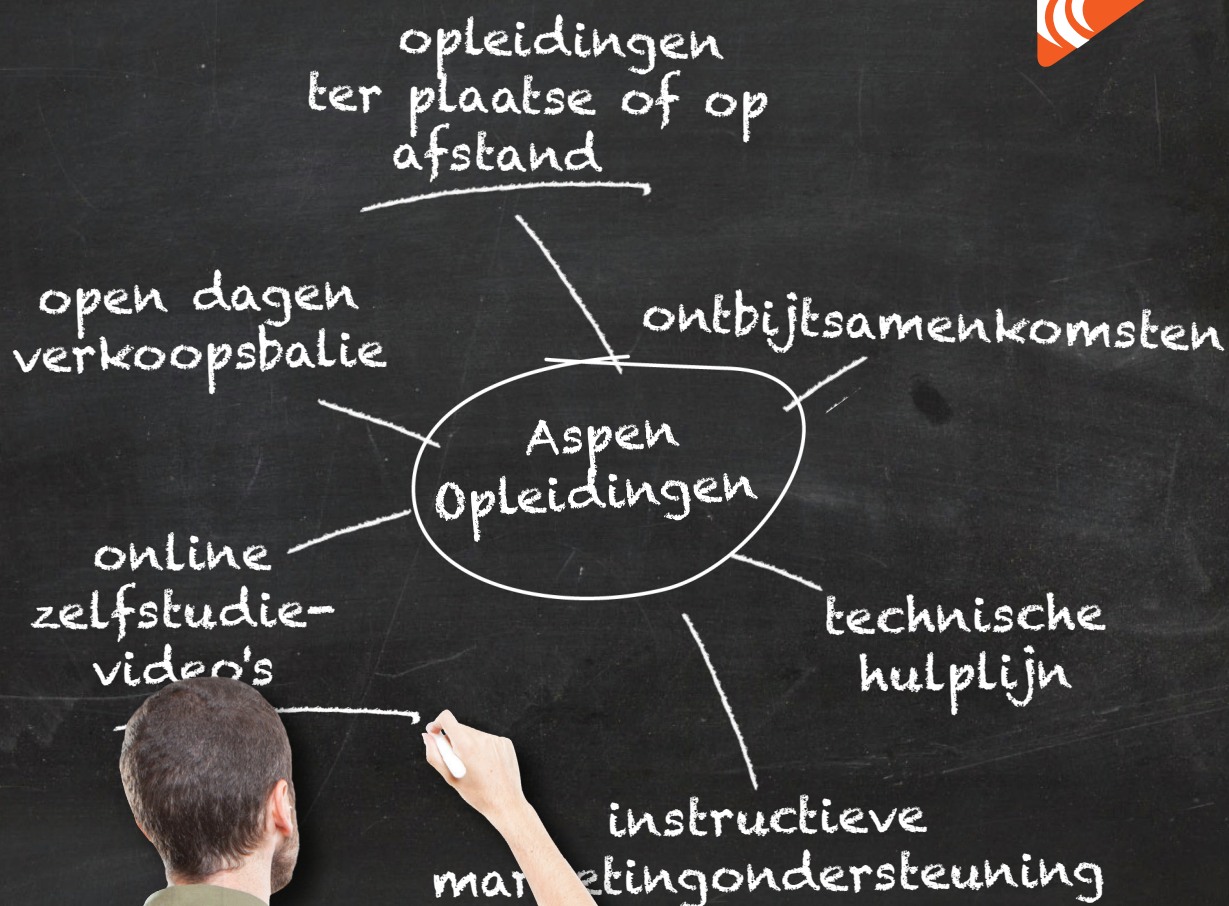 opleidingen
ter plaatse of op
afstand
open dagen
verkoopsbalie
ontbijtsamenkomsten
Aspen
Opleidingen
online
zelfstudie-
video's
technische
hulplijn
instructieve
marketingondersteuning